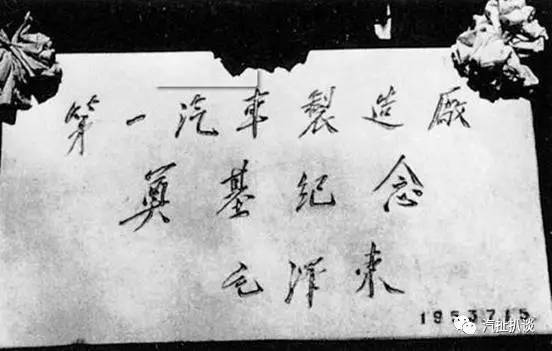 第一汽車製造廠
奠基紀念
毛澤東
1953715
汽扯扒谈